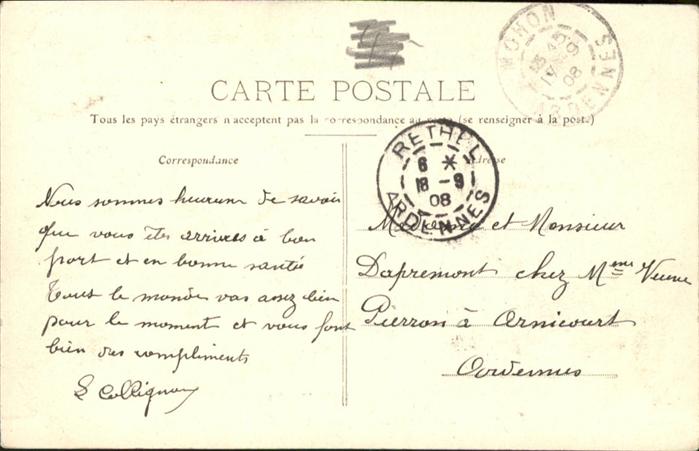 MOHON
17-9
08
ARDENNES
CARTE POSTALE
Tous les pays étrangers n'acceptent pas la correspondance au recto (se renseigner à la poste)
RETHEL
6 *
18-9
08
ARDENNES
Correspondance
Adresse
Nous sommes heureux de savoir
que vous êtes arrivés à bon
port et en bonne santé
Tout le monde vas assez bien
pour le moment et vous font
bien des compliments
L Collignon
Madame et Monsieur
Dapremont chez Mme Veuve
Pierron à Arnicourt
Ardennes